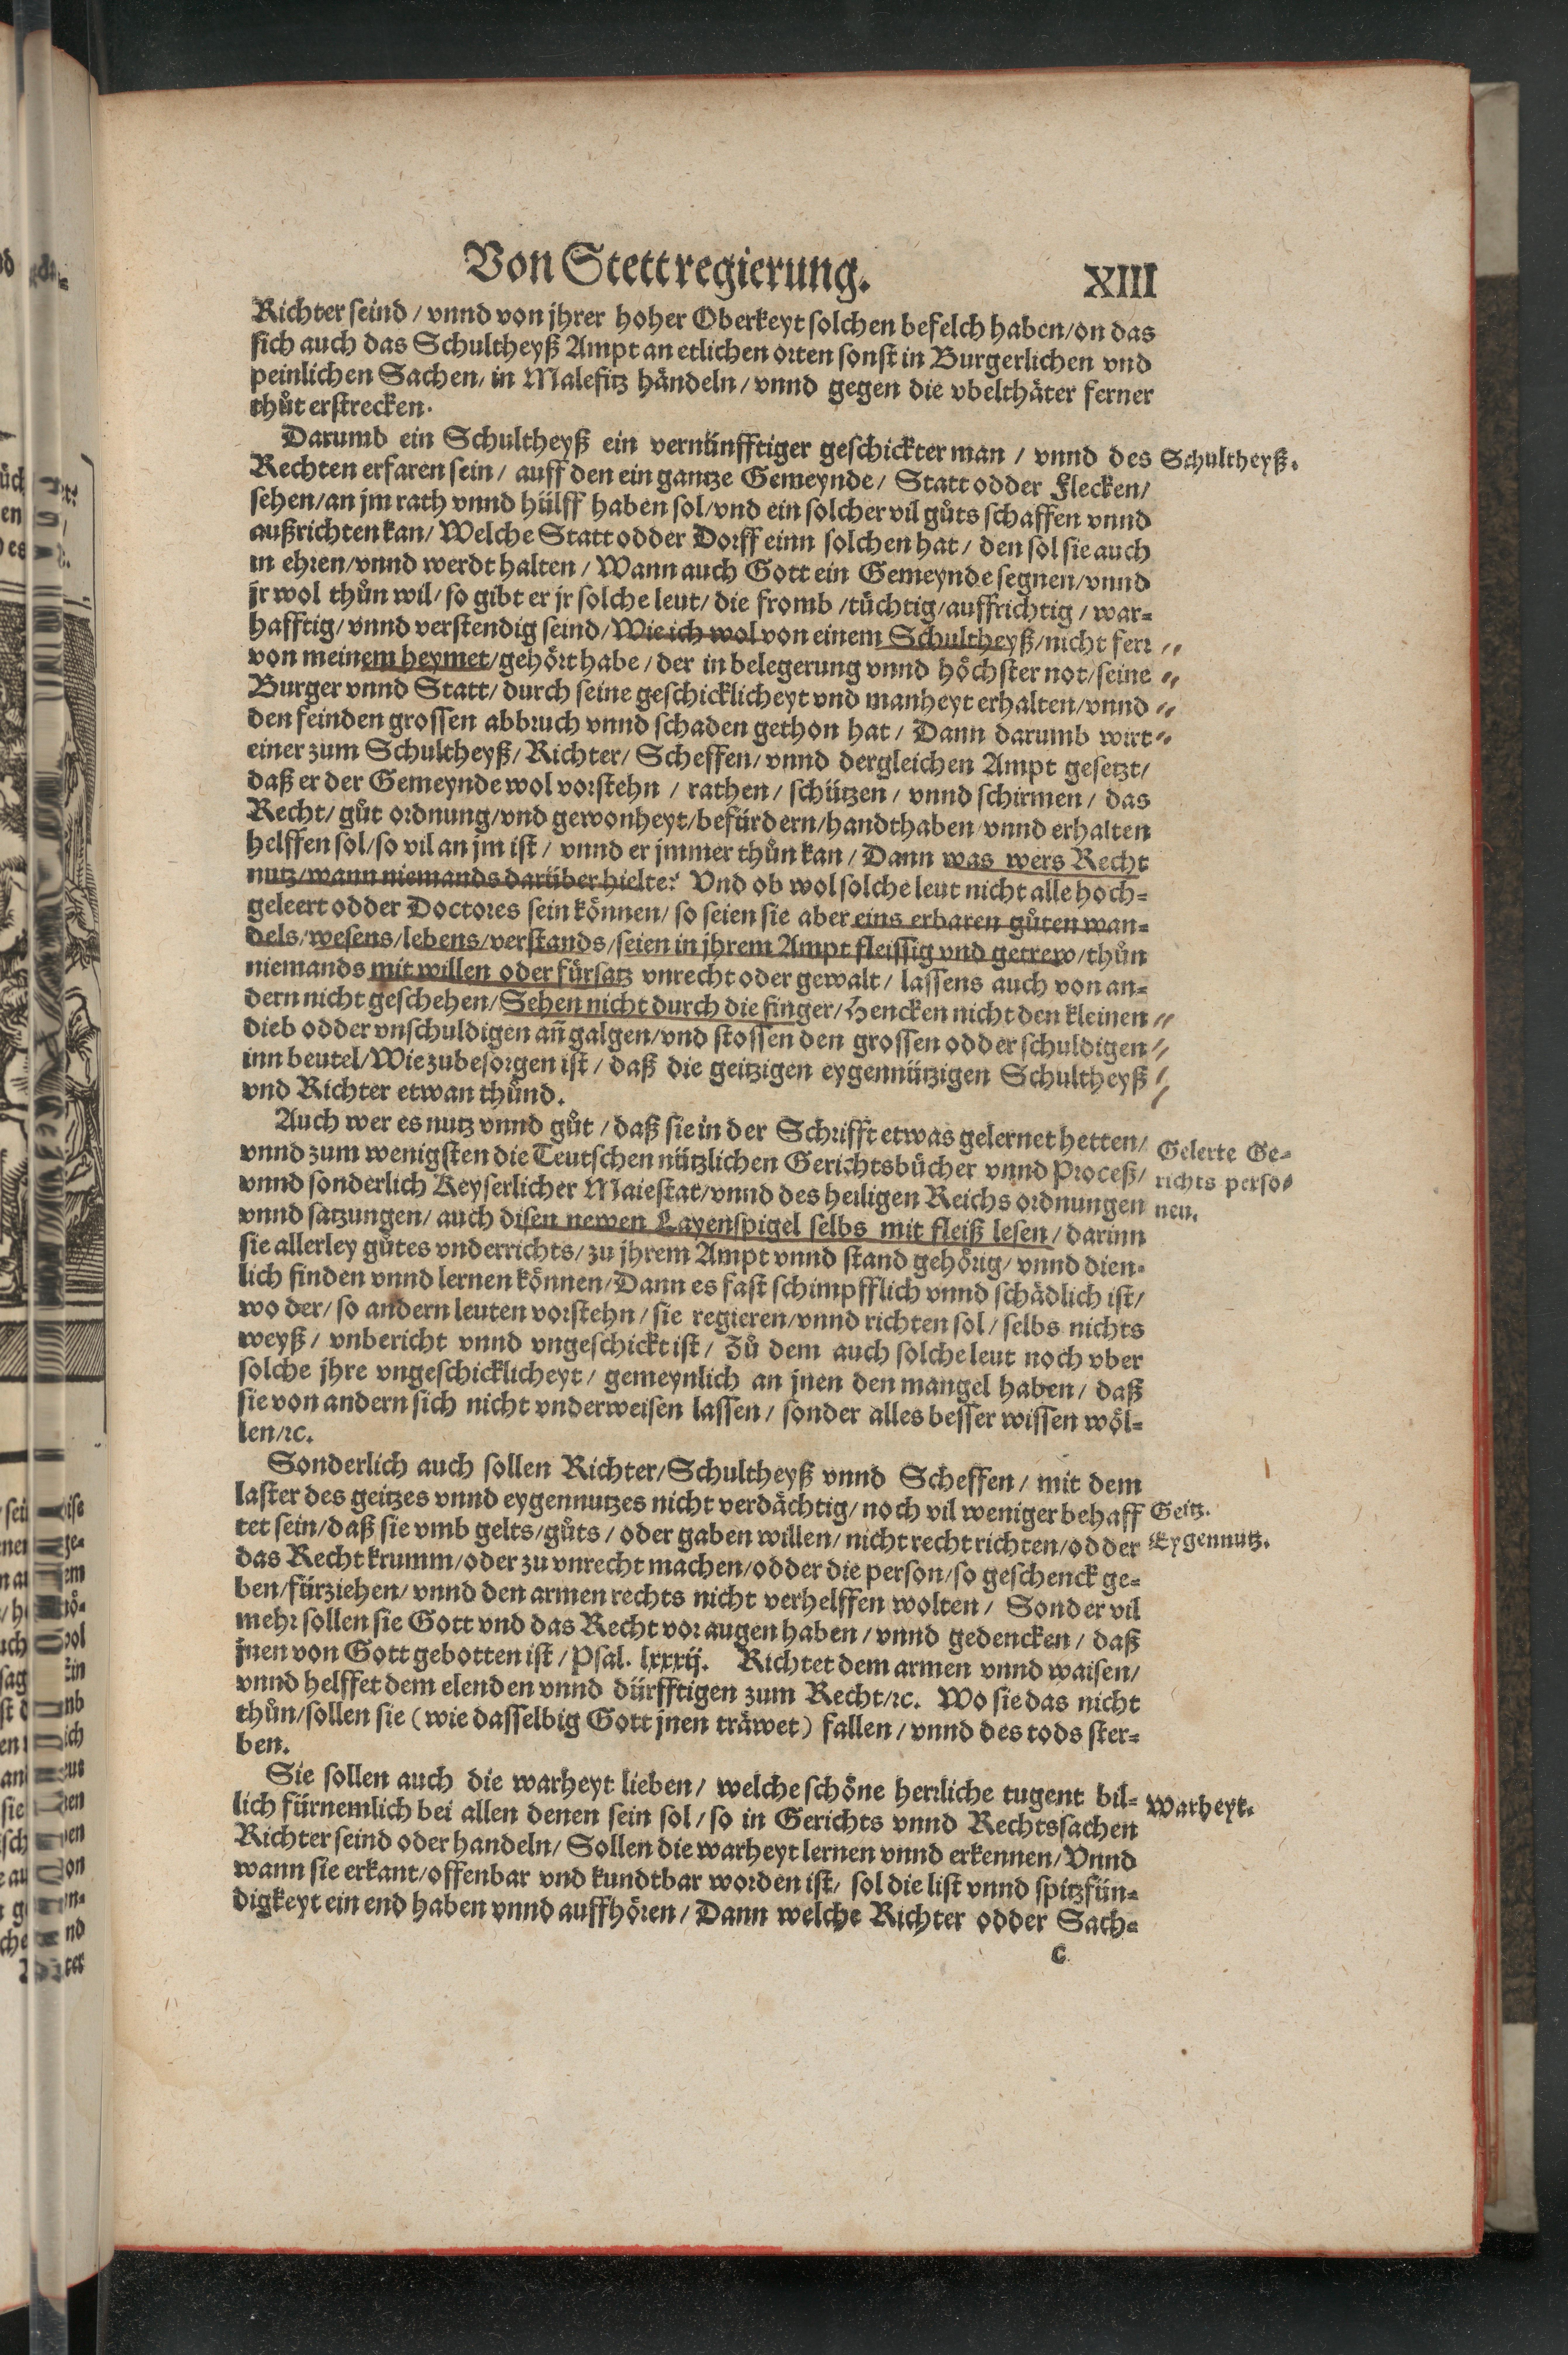 Von Stettregierung. XIII
Richter seind / vnnd von jhrer hoher Oberkeyt solchen befelch haben / on das
sich auch das Schultheyß Ampt an etlichen orten sonst in Burgerlichen vnd
peinlichen Sachen / in Malefitz händeln / vnnd gegen die vbelthäter ferner
thůt erstrecken.
Darumb ein Schultheyß ein vernünfftiger geschickter man / vnnd des
Schultheyß.
Rechten erfaren sein / auff den ein gantze Gemeynde / Statt odder Flecken /
sehen / an jm rath vnnd hülff haben sol / vnd ein solcher vil gůts schaffen vnnd
außrichten kan / Welche Statt odder Dorff einn solchen hat / den sol sie auch
in ehren / vnnd werdt halten / Wann auch Gott ein Gemeynde segnen / vnnd
jr wol thůn wil / so gibt er jr solche leut / die fromb / tüchtig / auffrichtig / war-
hafftig / vnnd verstendig seind / Wie ich wol von einem Schultheyß / nicht ferr
von meinem heymet / gehört habe / der in belegerung vnnd höchster not / seine
Burger vnnd Statt / durch seine geschicklicheyt vnd manheyt erhalten / vnnd
den feinden grossen abbruch vnnd schaden gethon hat / Dann darumb wirt
einer zum Schultheyß / Richter / Scheffen / vnnd dergleichen Ampt gesetzt /
daß er der Gemeynde wol vorstehn / rathen / schützen / vnnd schirmen / das
Recht / gůt ordnung / vnd gewonheyt / befürdern / handthaben / vnnd erhalten
helffen sol / so vil an jm ist / vnnd er jmmer thůn kan / Dann was wers Recht
nutz / wann niemands darüber hielte? Vnd ob wol solche leut nicht alle hoch-
geleert odder Doctores sein können / so seien sie aber eins erbaren gůten wan-
dels / wesens / lebens / verstands / seien in jhrem Ampt fleissig vnd getrew / thůn
niemands mit willen oder fürsatz vnrecht oder gewalt / lassens auch von an-
dern nicht geschehen / Sehen nicht durch die finger / Hencken nicht den kleinen
dieb odder vnschuldigen an̄ galgen / vnd stossen den grossen odder schuldigen
inn beutel / Wie zubesorgen ist / daß die geitzigen eygennützigen Schultheyß
vnd Richter etwan thůnd.
Auch wer es nutz vnnd gůt / daß sie in der Schrifft etwas gelernet hetten /
Gelerte Ge-
vnnd zum wenigsten die Teutschen nützlichen Gerichtsbücher vnnd Proceß /
richts perso-
vnnd sonderlich Keyserlicher Maiestat / vnnd des heiligen Reichs ordnungen
nen.
vnnd satzungen / auch disen newen Layenspigel selbs mit fleiß lesen / darinn
sie allerley gůtes vnderrichts / zu jhrem Ampt vnnd stand gehörig / vnnd dien-
lich finden vnnd lernen können / Dann es fast schimpfflich vnnd schädlich ist /
wo der / so andern leuten vorstehn / sie regieren / vnnd richten sol / selbs nichts
weyß / vnbericht vnnd vngeschickt ist / Zů dem auch solche leut noch vber
solche jhre vngeschicklicheyt / gemeynlich an jnen den mangel haben / daß
sie von andern sich nicht vnderweisen lassen / sonder alles besser wissen wöl-
len / ꝛc.
Sonderlich auch sollen Richter / Schultheyß vnnd Scheffen / mit dem
laster des geitzes vnnd eygennutzes nicht verdächtig / noch vil weniger behaff
Geitz.
tet sein / daß sie vmb gelts / gůts / oder gaben willen / nicht recht richten / odder
Eygennutz.
das Recht krumm / oder zu vnrecht machen / odder die person / so geschenck ge-
ben / fürziehen / vnnd den armen rechts nicht verhelffen wolten / Sonder vil
mehr sollen sie Gott vnd das Recht vor augen haben / vnnd gedencken / daß
jnen von Gott gebotten ist / Psal. lxxxij. Richtet dem armen vnnd waisen /
vnnd helffet dem elenden vnnd dürfftigen zum Recht / ꝛc. Wo sie das nicht
thůn / sollen sie (wie dasselbig Gott jnen träwet) fallen / vnnd des tods ster-
ben.
Sie sollen auch die warheyt lieben / welche schöne herrliche tugent bil-
Warheyt.
lich fürnemlich bei allen denen sein sol / so in Gerichts vnnd Rechtssachen
Richter seind oder handeln / Sollen die warheyt lernen vnnd erkennen / Vnnd
wann sie erkant / offenbar vnd kundtbar worden ist / sol die list vnnd spitzfün-
digkeyt ein end haben vnnd auffhören / Dann welche Richter odder Sach-
C